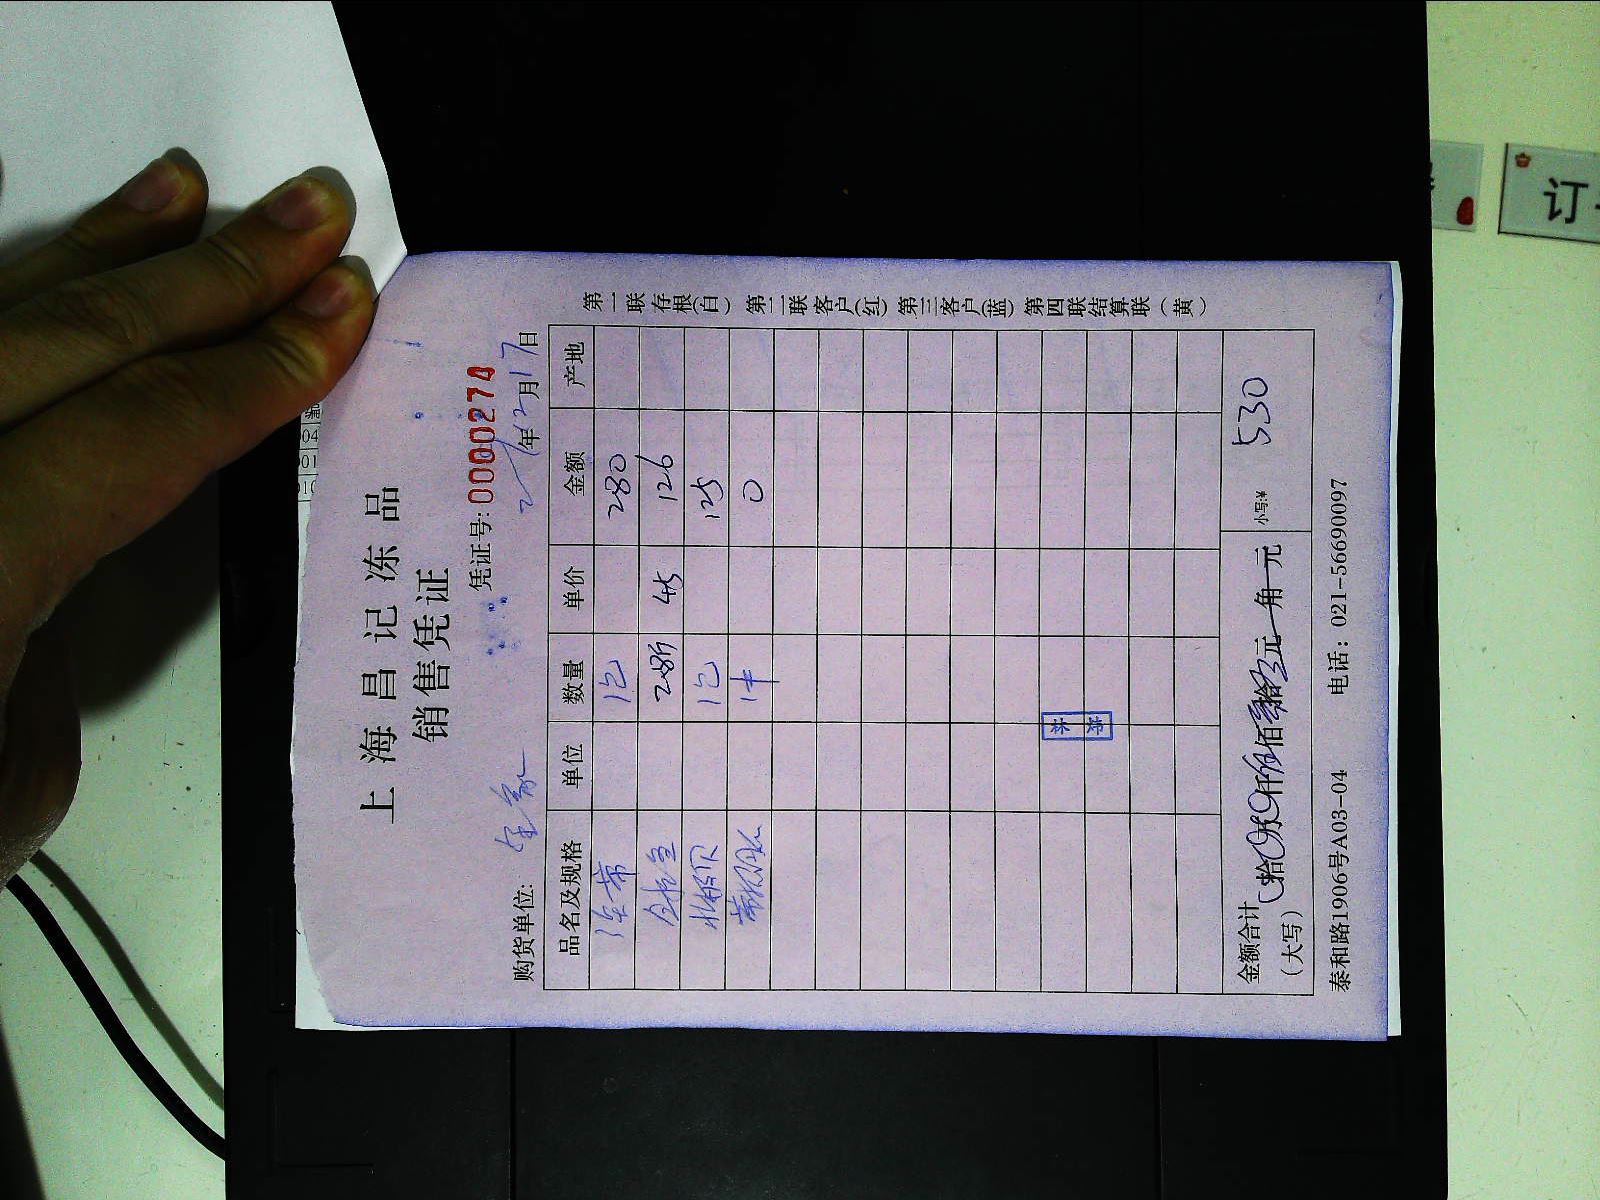 上海昌记冻品
销售凭证
凭证号:0000274
年12月17日
购货单位:
品名及规格 单位 数量 单价 金额 产地
1包 280
28斤 45 126
北极贝 1包 125
1件 0
金额合计(大写) 拾 仟伍佰叁拾 元 角 元 小写:¥ 530
泰和路1906号A03-04 电话: 021-56690097
第一联存根(白) 第二联客户(红) 第三客户(蓝) 第四联结算联(黄)
订